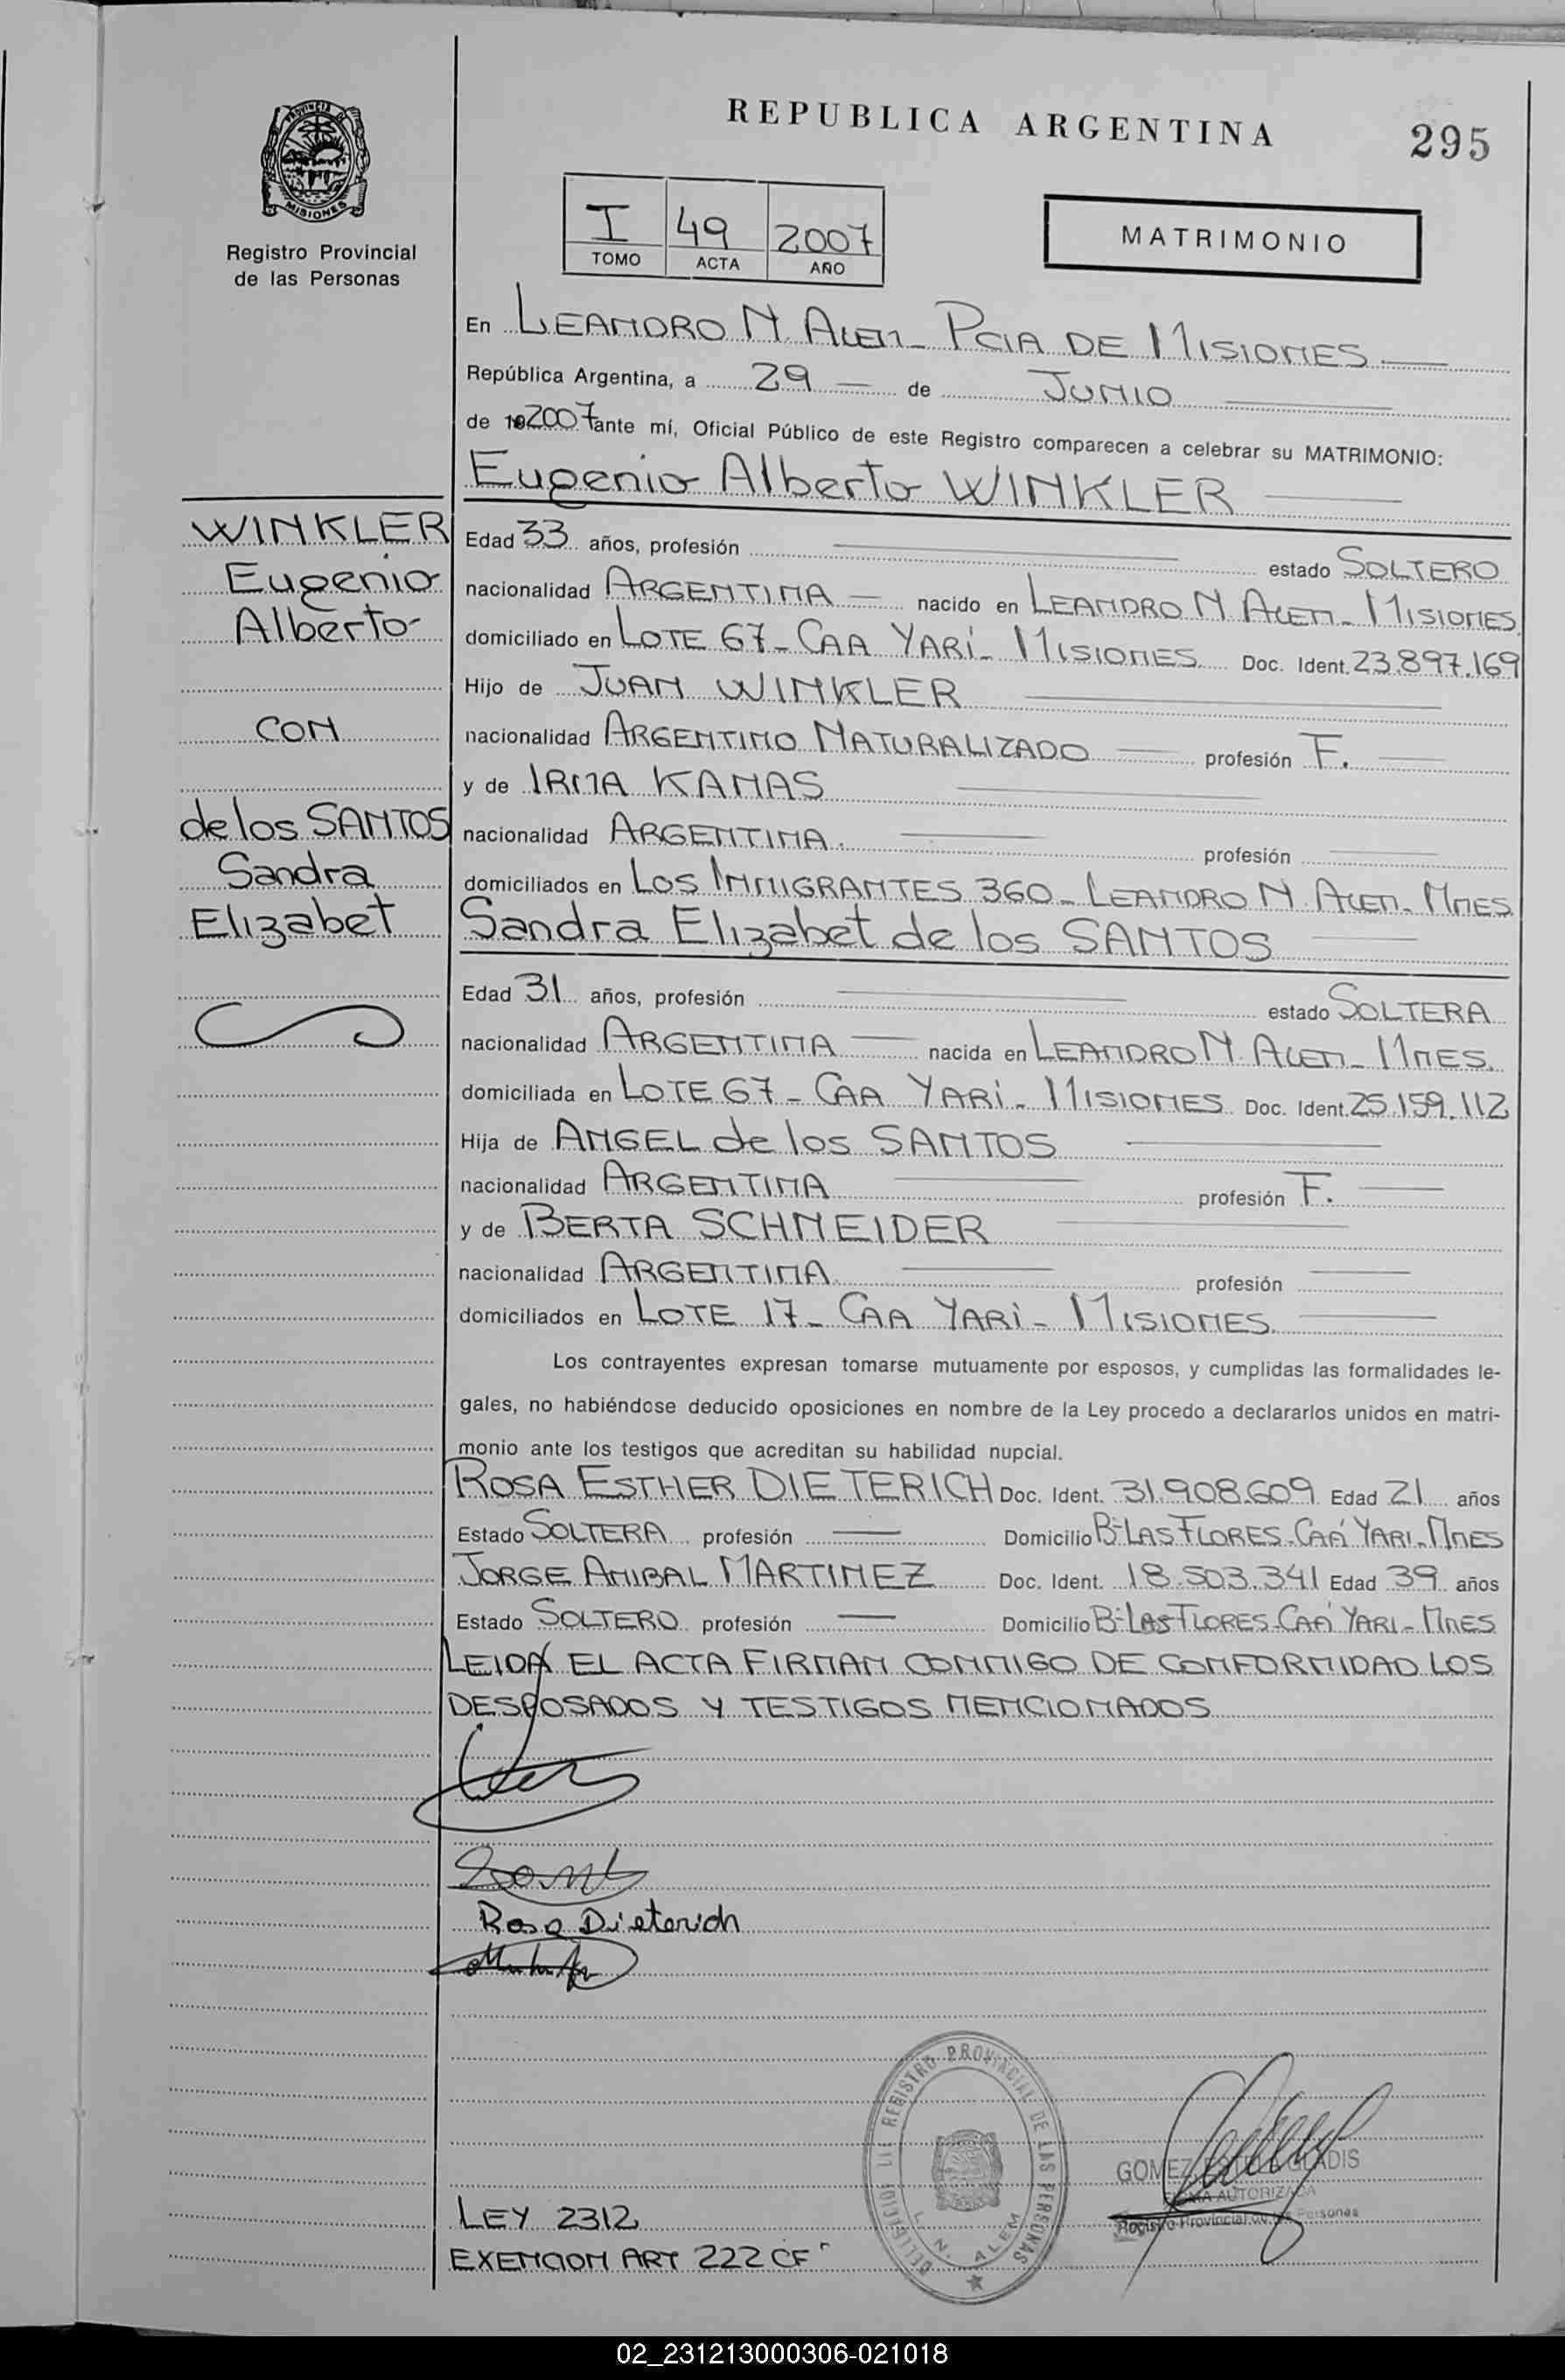 REPUBLICA ARGENTINA
295
PROVINCIA DE
MISIONES
Registro Provincial
de las Personas
I 49 2007
TOMO ACTA AÑO
MATRIMONIO
En LEANDRO N. ALEM - PCIA DE MISIONES
República Argentina, a 29 de JUNIO
de 192007 ante mí, Oficial Público de este Registro comparecen a celebrar su MATRIMONIO:
Eugenio Alberto WINKLER
WINKLER
Eugenio
Alberto
CON
de los SANTOS
Sandra
Elizabet
Edad 33 años, profesión estado SOLTERO
nacionalidad ARGENTINA nacido en LEANDRO N. ALEM - MISIONES
domiciliado en LOTE 67 - CAA YARÍ - MISIONES Doc. Ident. 23.897.169
Hijo de JUAN WINKLER
nacionalidad ARGENTINO NATURALIZADO profesión F.
y de IRMA KANAS
nacionalidad ARGENTINA. profesión
domiciliados en LOS INMIGRANTES 360 - LEANDRO N. ALEM - MNES
Sandra Elizabet de los SANTOS
Edad 31 años, profesión estado SOLTERA
nacionalidad ARGENTINA nacida en LEANDRO N. ALEM - MNES.
domiciliada en LOTE 67 - CAA YARÍ - MISIONES Doc. Ident. 25.159.112
Hija de ANGEL de los SANTOS
nacionalidad ARGENTINA profesión F.
y de BERTA SCHNEIDER
nacionalidad ARGENTINA profesión
domiciliados en LOTE 17 - CAA YARÍ - MISIONES
Los contrayentes expresan tomarse mutuamente por esposos, y cumplidas las formalidades le-
gales, no habiéndose deducido oposiciones en nombre de la Ley procedo a declararlos unidos en matri-
monio ante los testigos que acreditan su habilidad nupcial.
ROSA ESTHER DIETERICH Doc. Ident. 31.908.609 Edad 21 años
Estado SOLTERA profesión Domicilio Bº LAS FLORES - CAÁ YARI - MNES
JORGE ANIBAL MARTINEZ Doc. Ident. 18.503.341 Edad 39 años
Estado SOLTERO profesión Domicilio Bº LAS FLORES - CAÁ YARI - MNES
LEIDA EL ACTA FIRMAN CONMIGO DE CONFORMIDAD LOS
DESPOSADOS Y TESTIGOS MENCIONADOS
Rosa Dieterich
REGISTRO PROVINCIAL DE LAS PERSONAS
L. N. ALEM
GOMEZ GLADIS
FIRMA AUTORIZADA
Registro Provincial de las Personas
LEY 2312
EXENCION ART 222 CF
02_231213000306-021018